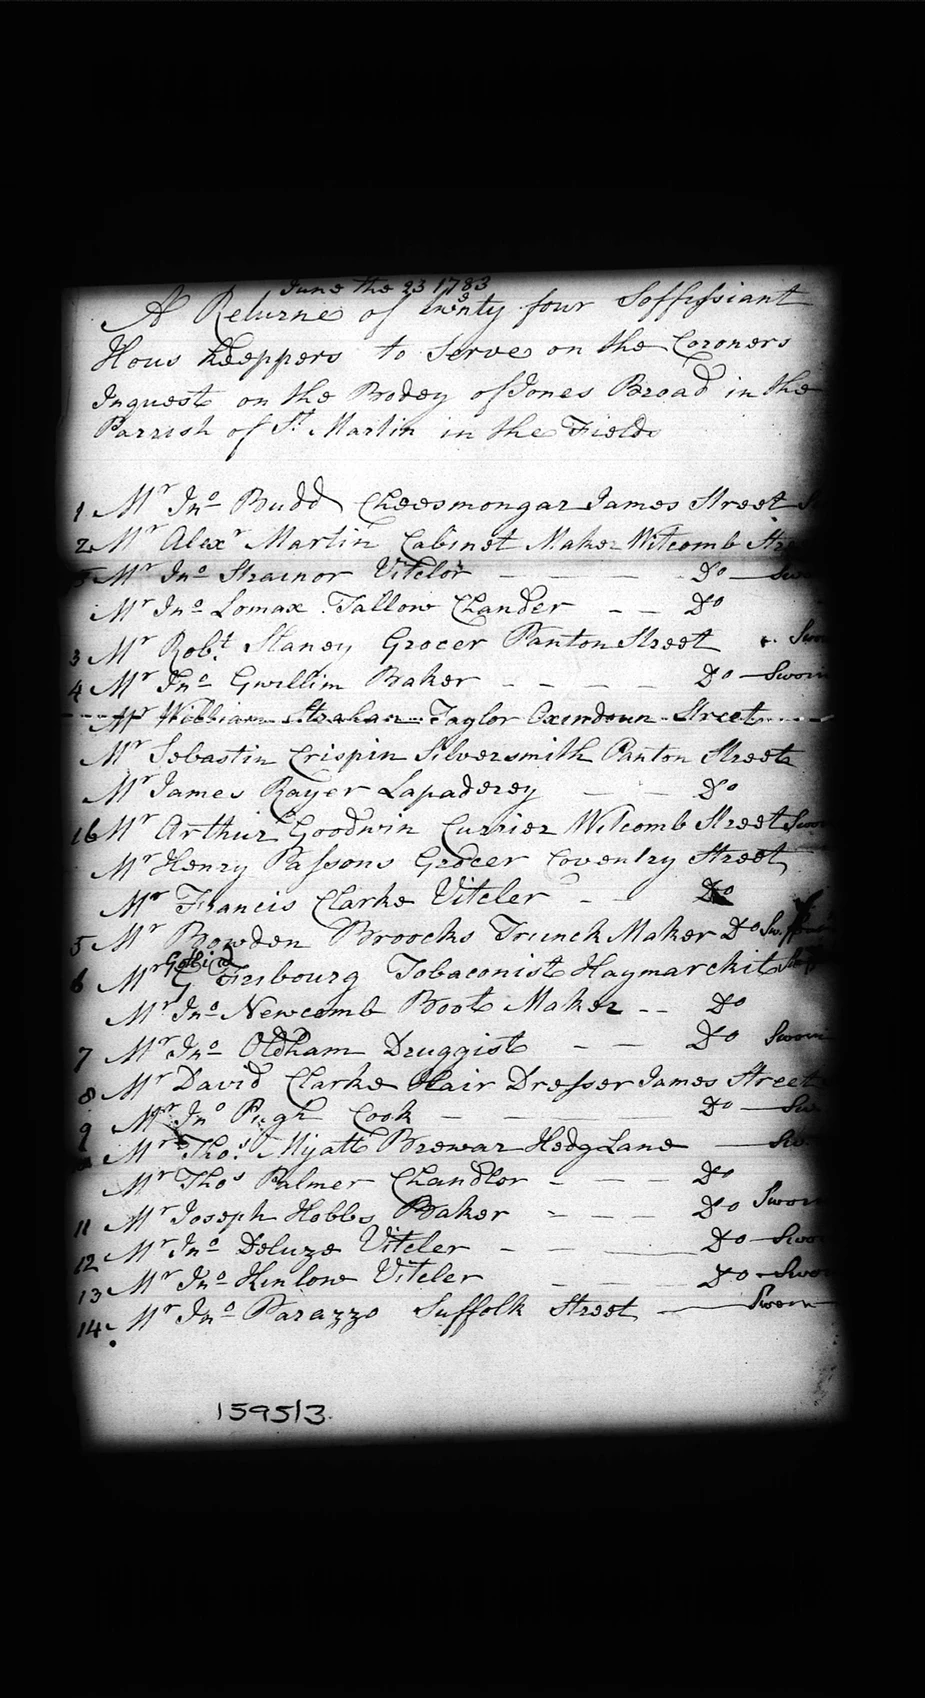 June the 23 1783
A Returne of twenty four Soffissiant
Hous Keeppers to Serve on the Coroners
Inquest on the Bodey of Jones Broad in the
Parrish of St Martin in the Fields
1 Mr Jno Budd Cheesmongar James Street
2 Mr Alexr Martin Cabinet Maker Witcomb Stre
Mr Jno Strainor Vitelor - - - Do - Swo
Mr Jno Lomax Tallow Chander - - Do
3 Mr Robt Staney Grocer Panton Street Swo
4 Mr Jno Gwillim Baker - - - - Do - Sworn
Mr William Strahan Taylor Oxendoun Street
Mr Sebastin Crispin Silversmith Panton Street
Mr James Rayer Lapaderey - - Do
16 Mr Arthur Goodwin Currier Witcomb Street Swo
Mr Henry Passons Grocer Coventry Street
Mr Francis Clarke Viteler - - Do
5 Mr Bowden Broocks Trunck Maker Do
6 Mr G Fribourg Tobaconist Haymarckit
Mr Jno Newcomb Boot Maker - - Do
7 Mr Jno Oldham Druggist - - Do Sworn
8 Mr David Clarke Hair Dresser James Street
9 Mr Jno Pugh Cook - - - - Do - Sw
Mr Thos Myatt Brewar Hedg Lane - Sw
Mr Thos Palmer Chandlor - - - Do
11 Mr Joseph Hobbs Baker - - - Do Sworn
12 Mr Jno Deluze Viteler - - - Do - Swo
13 Mr Jno Kinlow Viteler - - - Do - Swor
14 Mr Jno Parazzo Suffolk Street - Sworn
1595/3